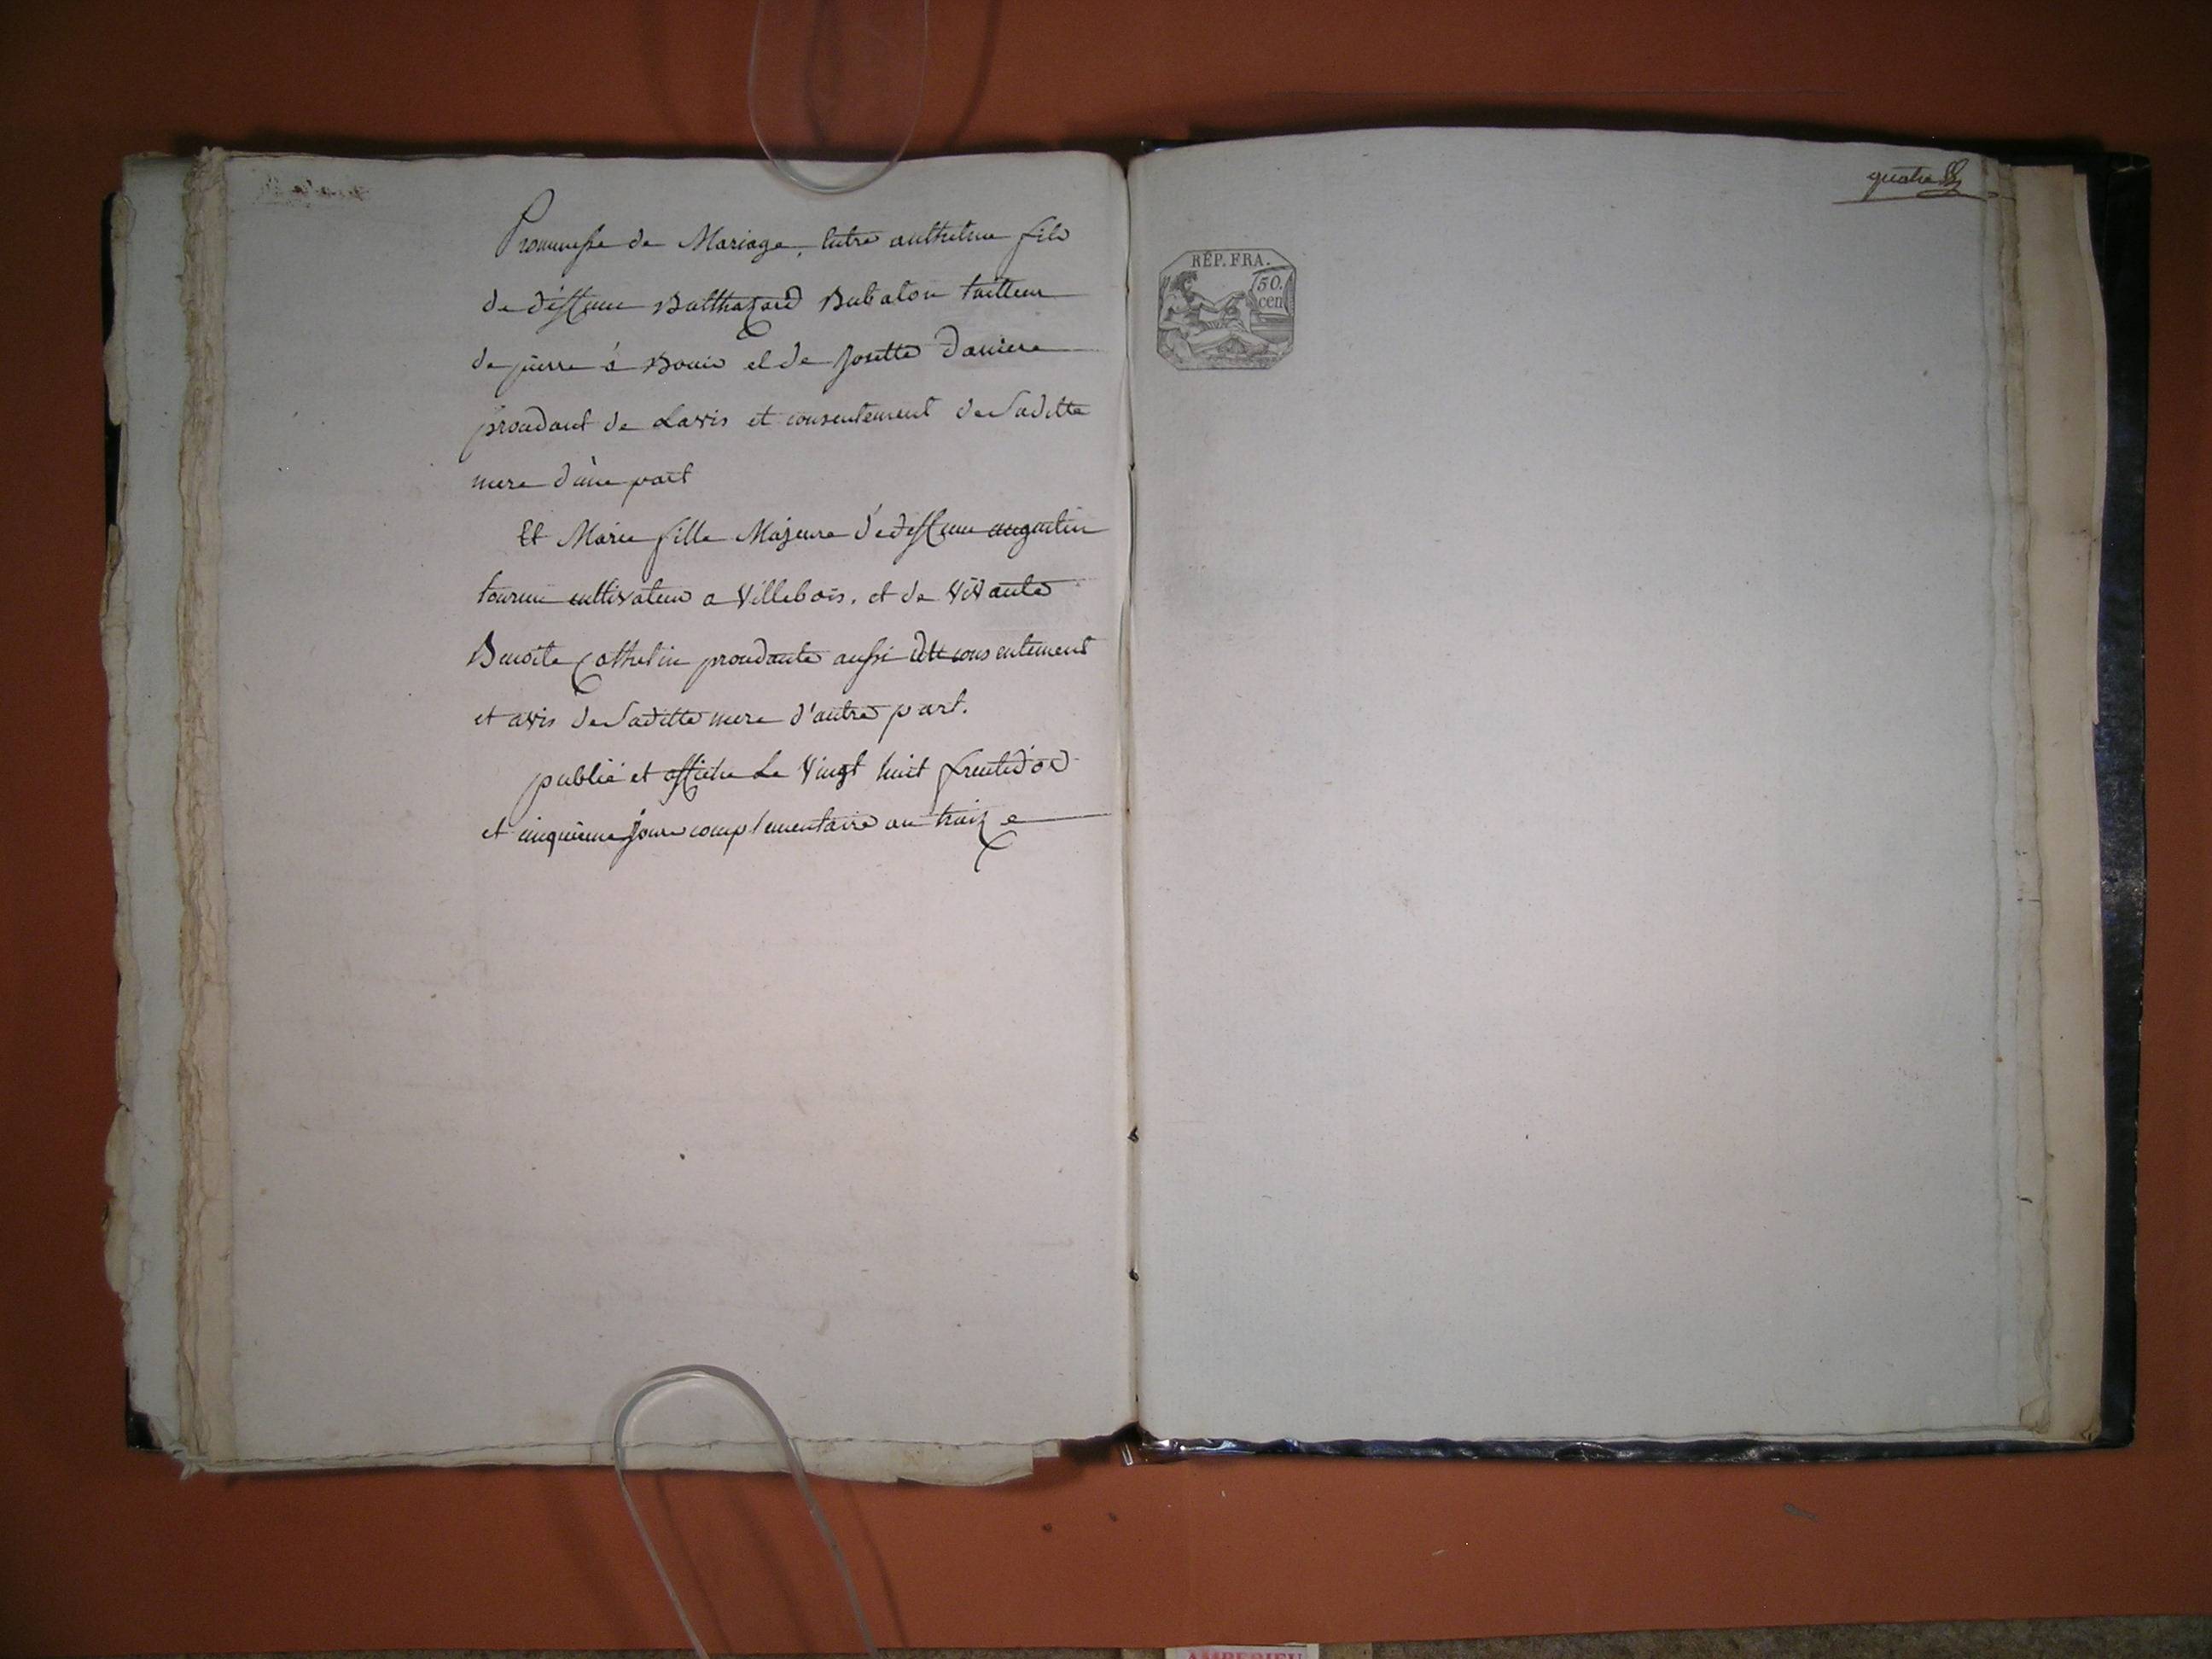 Prommesse de Mariage, Entre anthelme fils
de déffunt Balthazard Babalon tailleur
de pierre à Bouis et de Josette Daniere
procédant de Lavis et consentement de Laditte
mere d'une part
Et Marie fille Majeure de deffunt augustin
cultivateur a Villebois. et de Vivante
Benoite Cathelin procedante aussi du consentement
et avis de Laditte mere d'autre part.
publié et affiché Le Vingt huit fructidor
et cinquieme jour complementaire an traize
quatre
RÉP. FRA.
50.
cen
AMBERIEU